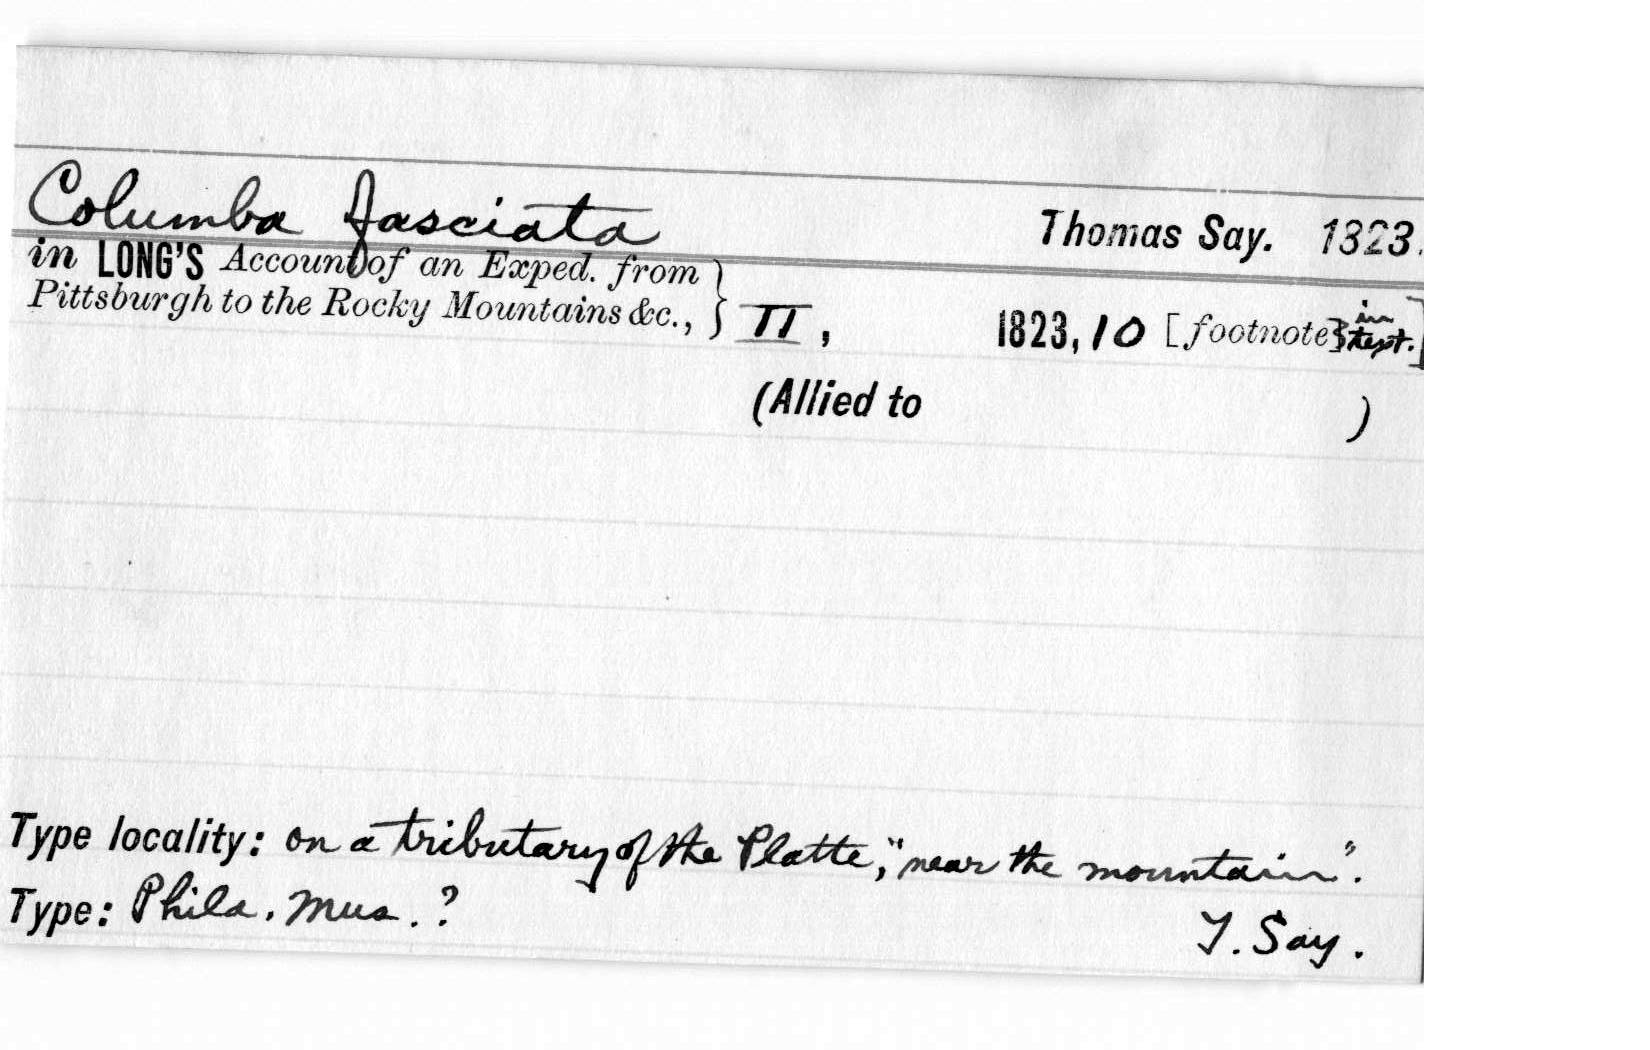 Columba fasciata Thomas Say. 1823.
in LONG'S Account of an Exped. from
Pittsburgh to the Rocky Mountains &c., } II, 1823, 10 [footnote} in text.]
(Allied to )
Type locality: on a tributary of the Platte, "near the mountain".
Type: Phila. Mus. ? T. Say.